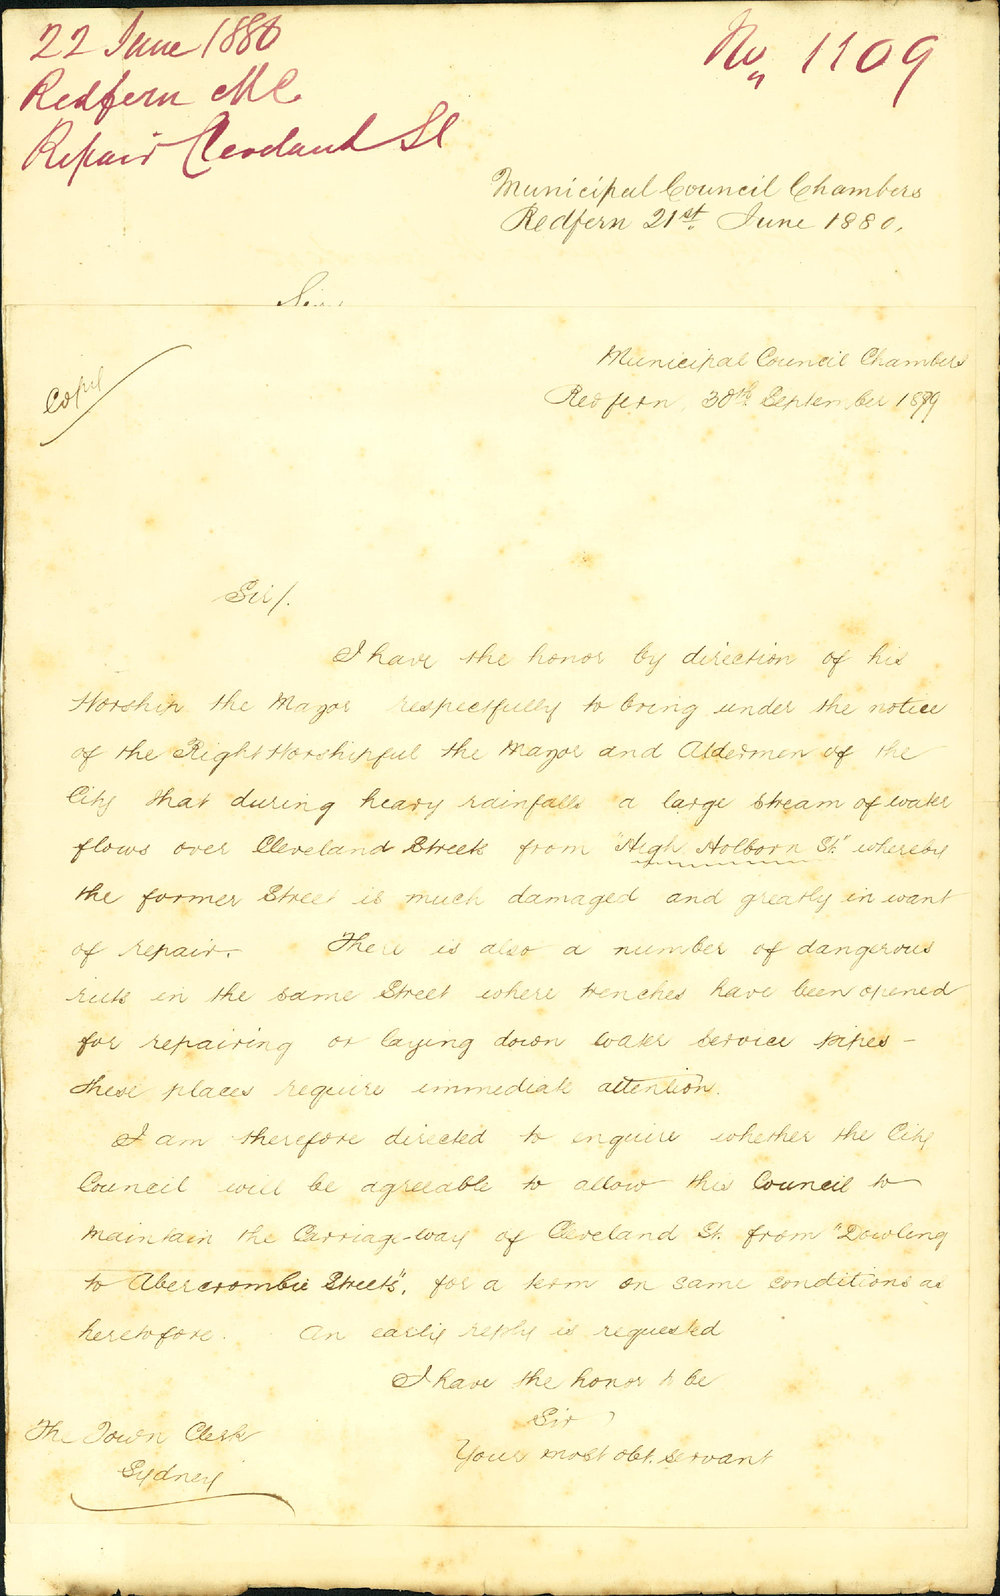 22 June 1880
Redfern M C
Repair Cleveland St
No, 1109
Municipal Council Chambers
Redfern 21st. June 1880.
Sir,
Copy
Municipal Council Chambers
Redfern, 30th September 1879
Sir/.
I have the honor by direction of his
Worship the Mayor respectfully to bring under the notice
of the Right Worshipful the Mayor and Aldermen of the
City that during heavy rainfalls a large stream of water
flows over Cleveland Street from "High Holborn St." whereby
the former Street is much damaged and greatly in want
of repair. There is also a number of dangerous
ruts in the same Street where trenches have been opened
for repairing or laying down water service pipes -
these places require immediate attention.
I am therefore directed to enquire whether the City
Council will be agreeable to allow this Council to
maintain the Carriage-way of Cleveland St. from "Dowling
to Abercrombie Streets", for a term on same conditions as
heretofore. An early reply is requested
I have the honor to be
Sir
Your most obt. servant
The Town Clerk
Sydney